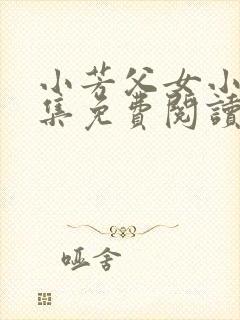 小芳父女小
集免費閱讀
哑舍